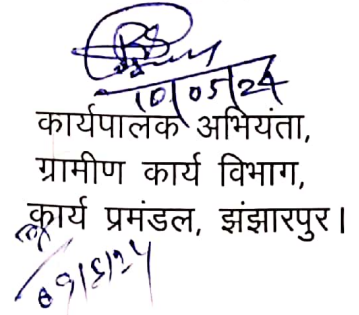 10/05/24
कार्यपालक अभियंता,
ग्रामीण कार्य विभाग,
कार्य प्रमंडल, झंझारपुर।
09/5/24